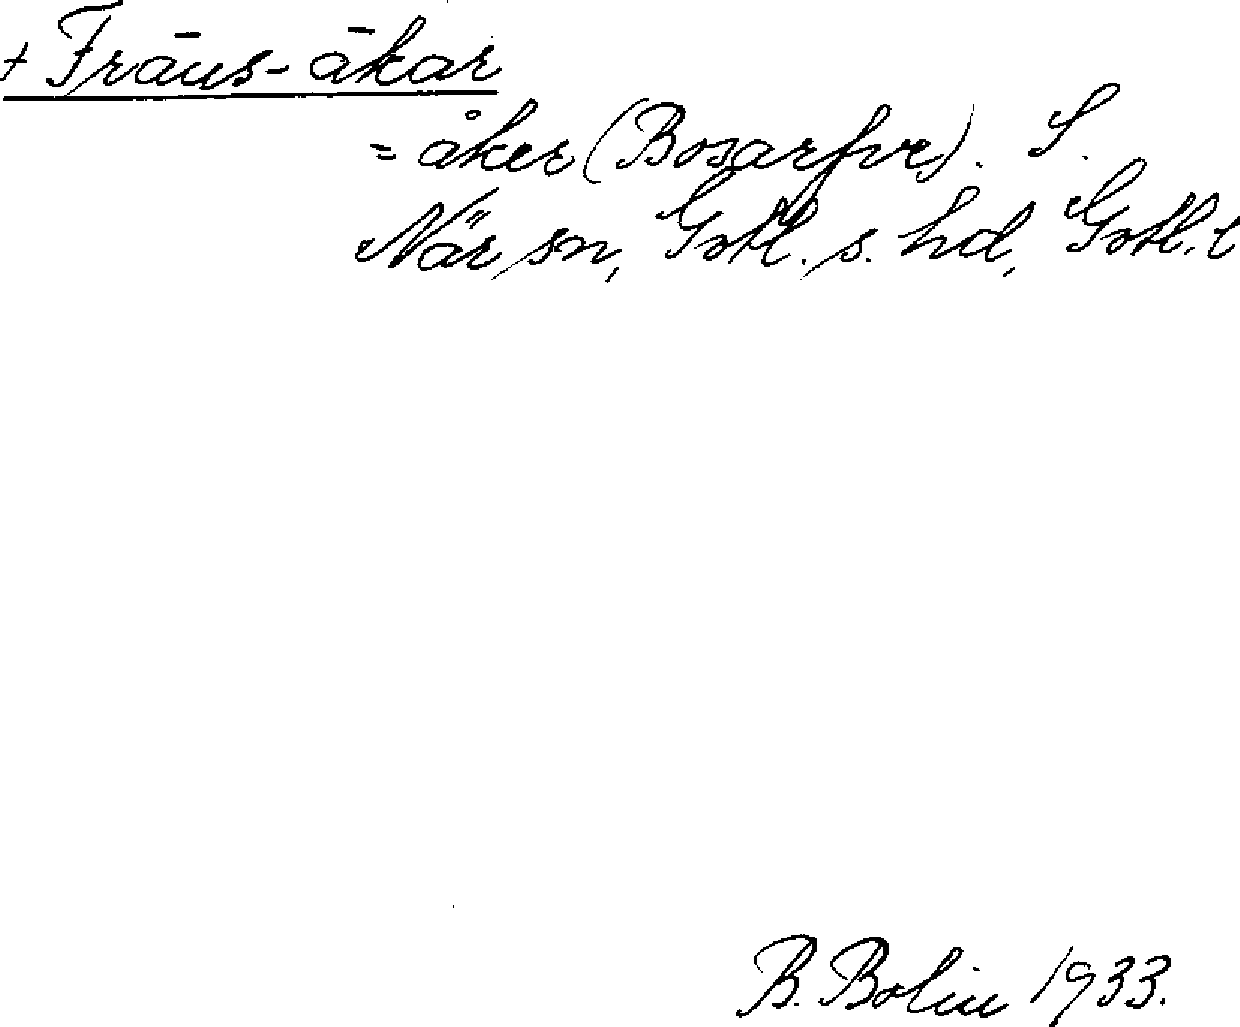 + Frāus-ākar
= åker (Bosarfve). S.
När sn, Gotl. s. hd, Gotl. l
B. Bolin 1933.